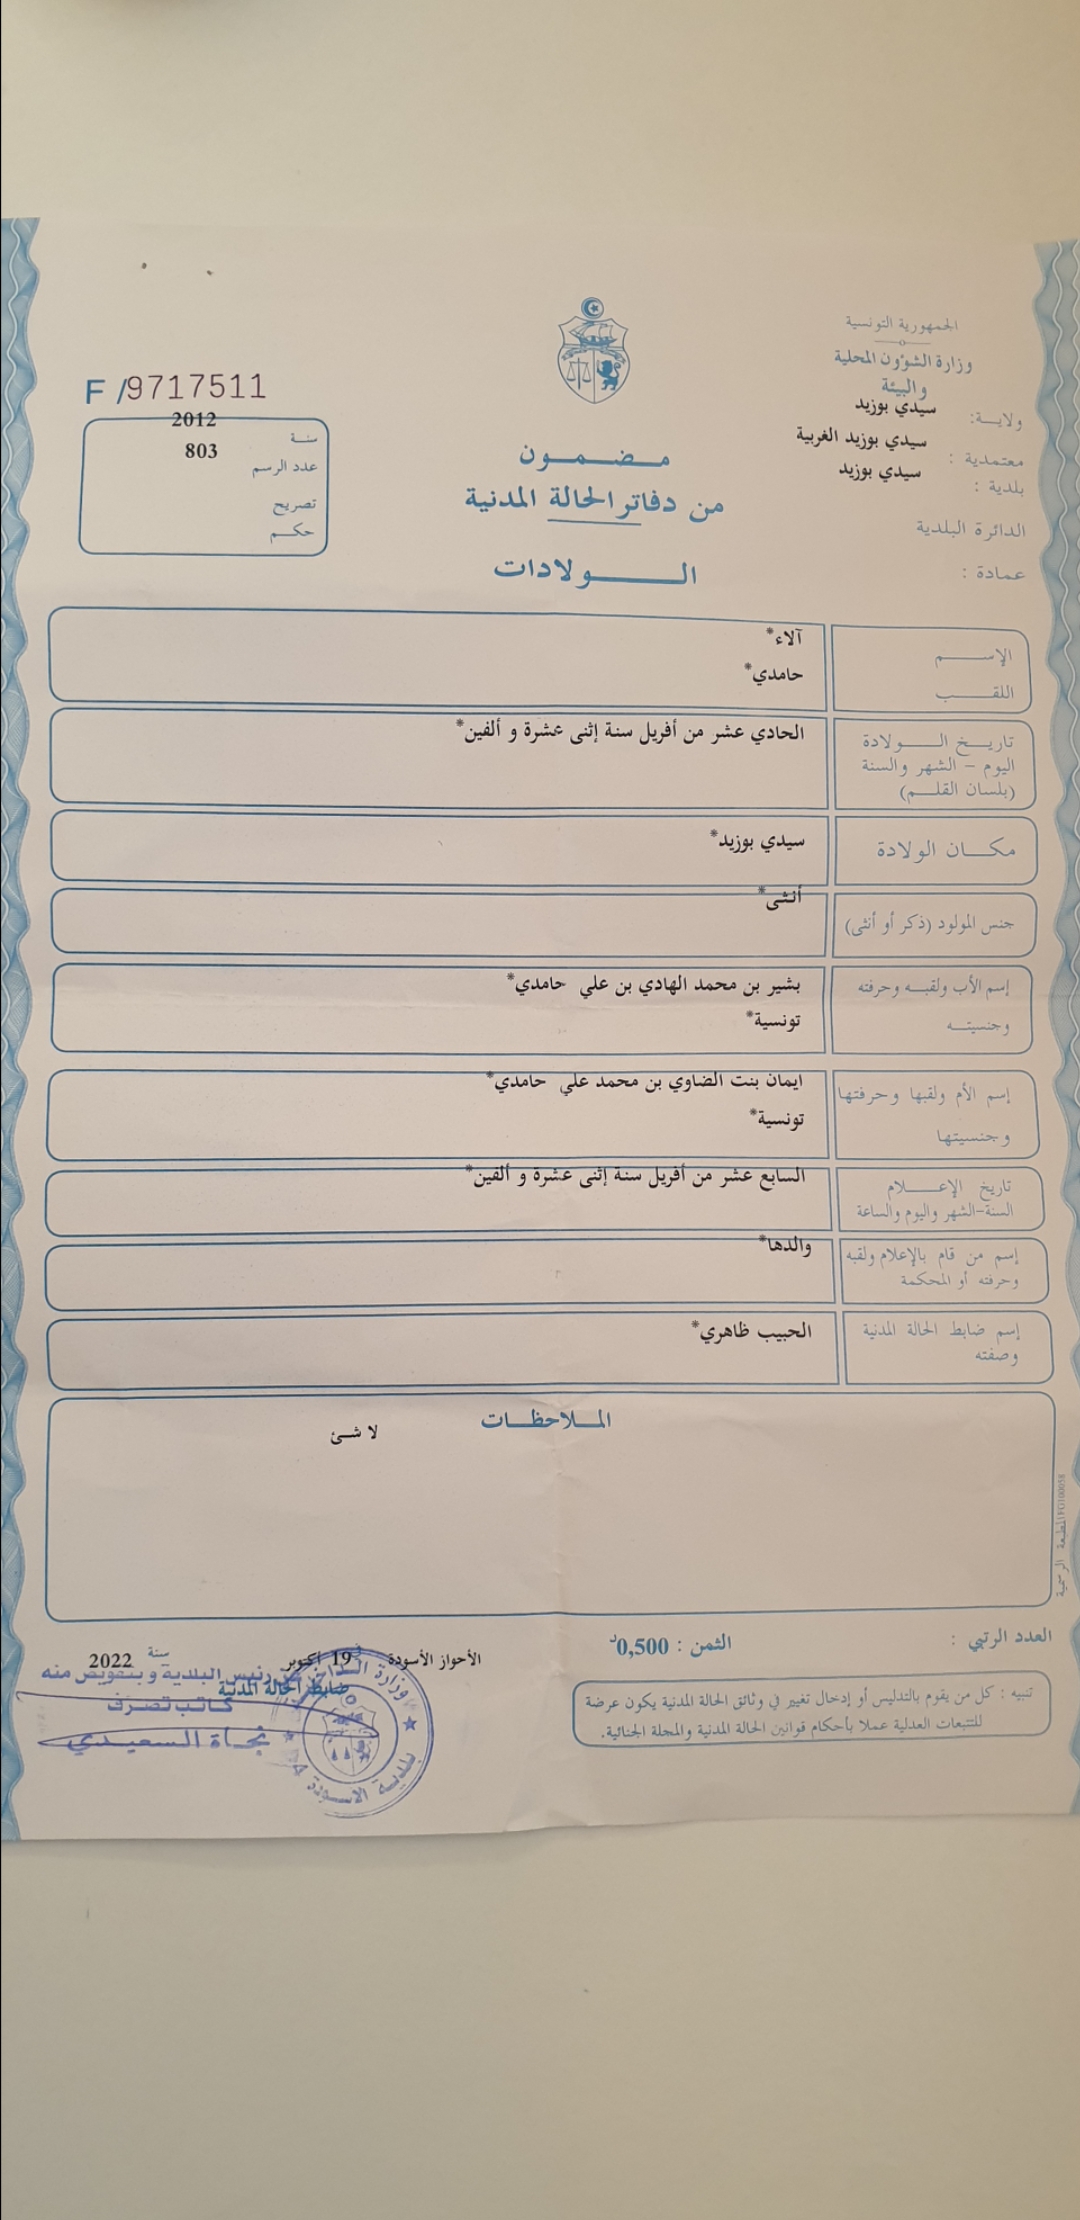 الجمهورية التونسية
وزارة الشؤون المحلية
والبيئة
ولايــة: سيدي بوزيد
معتمدية : سيدي بوزيد الغربية
بلدية : سيدي بوزيد
الدائرة البلدية
عمادة :
F /9717511
سنة 2012
عدد الرسم 803
تصريح
حكم
مضمون
من دفاتر الحالة المدنية
الولادات
الإسم آلاء*
اللقب حامدي*
تاريخ الولادة
اليوم – الشهر والسنة
(بلسان القلم)
الحادي عشر من أفريل سنة إثنى عشرة و ألفين*
مكان الولادة سيدي بوزيد*
جنس المولود (ذكر أو أنثى) أنثى*
إسم الأب ولقبه وحرفته بشير بن محمد الهادي بن علي حامدي*
وجنسيته تونسية*
إسم الأم ولقبها وحرفتها ايمان بنت الضاوي بن محمد علي حامدي*
وجنسيتها تونسية*
تاريخ الإعلام
السنة-الشهر واليوم والساعة
السابع عشر من أفريل سنة إثنى عشرة و ألفين*
إسم من قام بالإعلام ولقبه
وحرفته أو المحكمة
والدها*
إسم ضابط الحالة المدنية
وصفته
الحبيب ظاهري*
الملاحظات
لا شئ
المطبعة الرسمية
العدد الرتبي :
الثمن : 0,500د
تنبيه : كل من يقوم بالتدليس أو إدخال تغيير في وثائق الحالة المدنية يكون عرضة
للتتبعات العدلية عملا بأحكام قوانين الحالة المدنية والمجلة الجنائية.
الأحواز الأسودة في 19 أكتوبر سنة 2022
ضابط الحالة المدنية
عن رئيس البلدية وبتفويض منه
كاتب تصرف
نجاة السعيدي
وزارة الداخلية
بلدية الاسودة